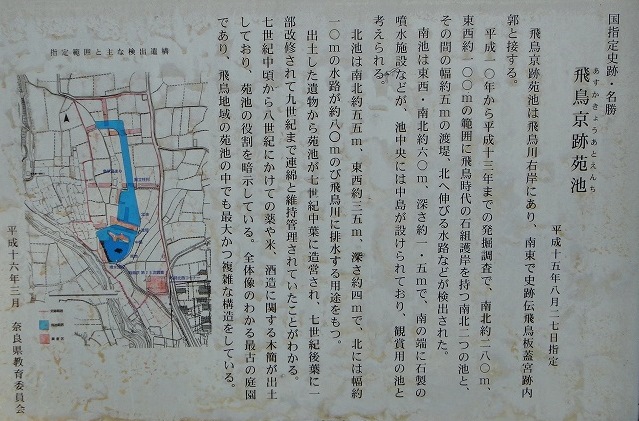 国指定史跡・名勝
飛鳥京跡苑池
あすかきょうあとえんち
平成十五年八月二七日指定
飛鳥京跡苑池は飛鳥川右岸にあり、南東で史跡伝飛鳥板蓋宮跡内
郭と接する。
平成一〇年から平成十三年までの発掘調査で、南北約二八〇m、
東西約一〇〇mの範囲に飛鳥時代の石組護岸を持つ南北二つの池と、
その間の幅約五mの渡堤、北へ伸びる水路などが検出された。
南池は東西・南北約六〇m、深さ約一・五mで、南の端に石製の
噴水施設などが、池中央には中島が設けられており、観賞用の池と
考えられる。
北池は南北約五五m、東西約三五m、深さ約四mで、北には幅約
一〇mの水路が約八〇mのび飛鳥川に排水する用途をもつ。
出土した遺物から苑池が七世紀中葉に造営され、七世紀後葉に一
部改修されて九世紀まで連綿と維持管理されていたことがわかる。
七世紀中頃から八世紀にかけての薬や米、酒造に関する木簡が出土
しており、苑池の役割を暗示している。全体像のわかる最古の庭園
であり、飛鳥地域の苑池の中でも最大かつ複雑な構造をしている。
指定範囲と主な検出遺構
平成十六年三月　奈良県教育委員会